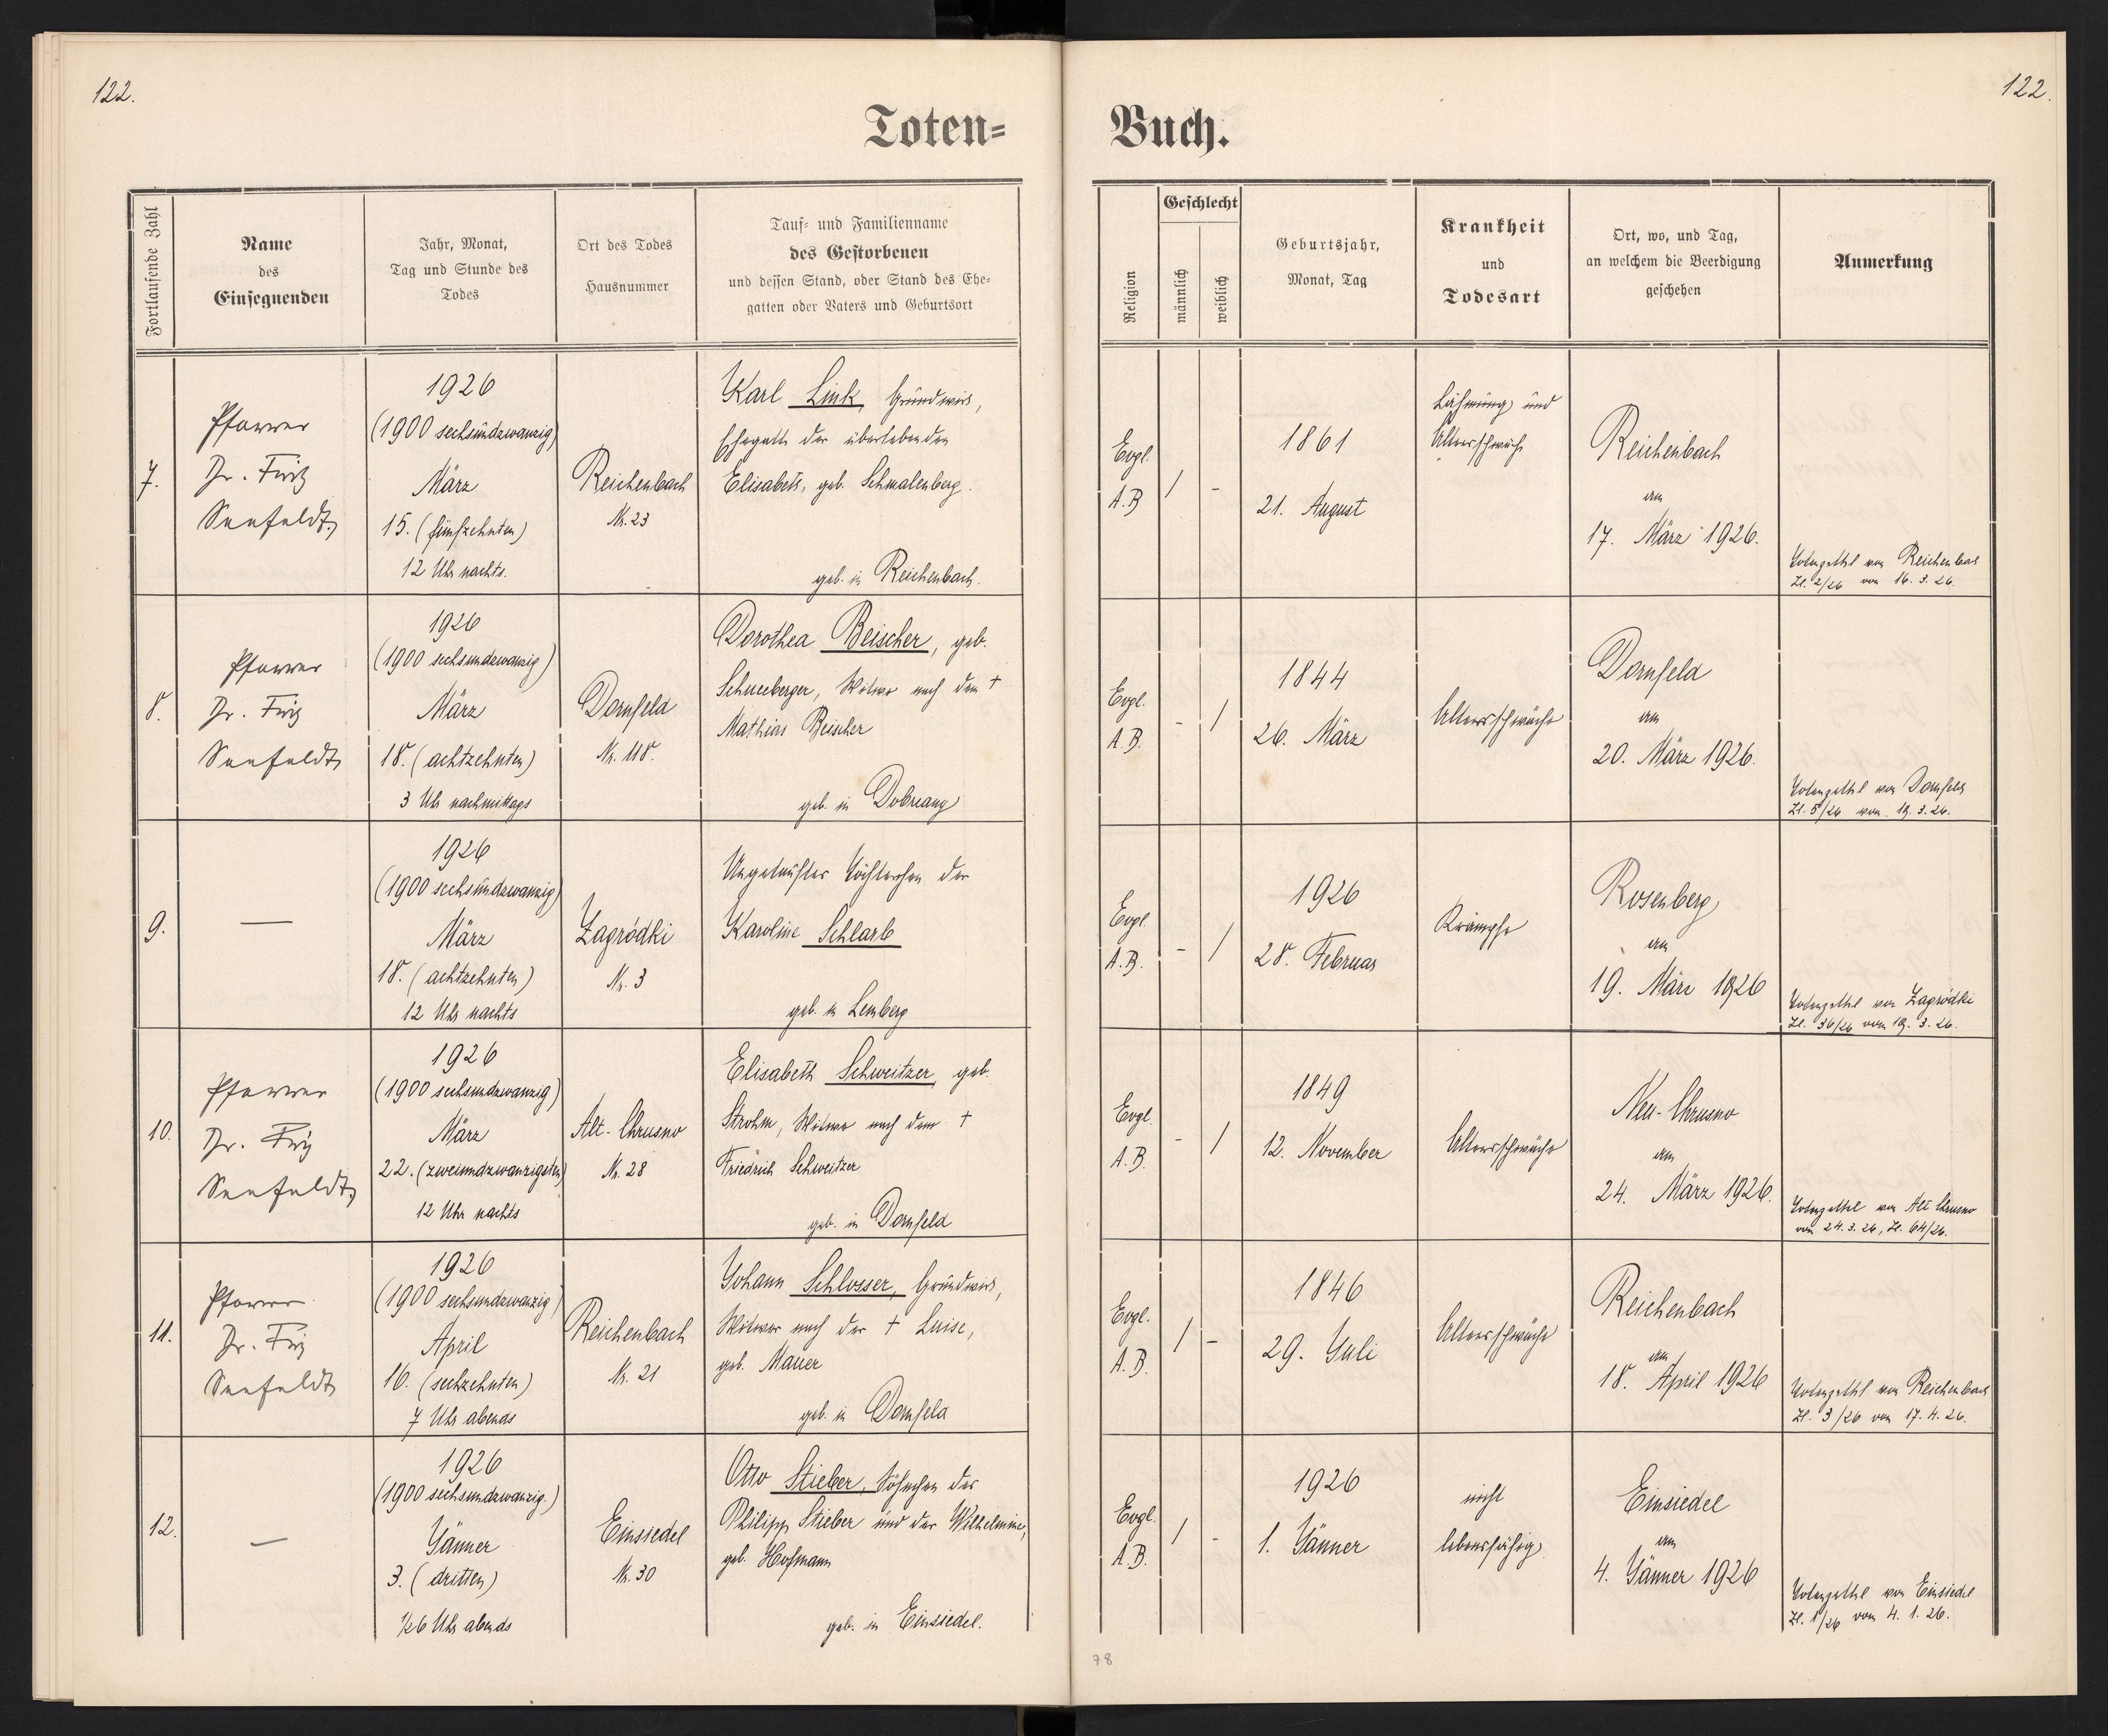 122.
122.
Toten=
Buch.
Fortlaufende Zahl
Name
des
Einsegnenden
Jahr, Monat,
Tag und Stunde des
Todes
Ort des Todes
Hausnummer
Tauf= und Familienname
des Gestorbenen
und dessen Stand, oder Stand des Ehe=
gatten oder Vaters und Geburtsort
Religion
Geschlecht
männlich
weiblich
Geburtsjahr,
Monat, Tag
Krankheit
und
Todesart
Ort, wo, und Tag,
an welchem die Beerdigung
geschehen
Anmerkung
7.
Pfarrer
Dr. Fritz
Seefeldt
1926
(1900 sechsundzwanzig)
März
15. (fünfzehnten)
12 Uhr nachts.
Reichenbach
Nr. 23
Karl Link, Grundwirt,
Ehegatte der überlebenden
Elisabeth, geb. Schmalenberg.
geb. in Reichenbach.
Evgl.
A.B
/
-
1861
21. August
Lähmung und
Altersschwäche
Reichenbach
am
17. März 1926.
Totenzettel von Reichenbach
Zl. 2/26 vom 16. 3. 26.
8.
Pfarrer
Dr. Fritz
Seefeldt
1926
(1900 sechsundzwanzig)
März
18. (achtzehnten)
3 Uhr nachmittags
Dornfeld
Nr. 118.
Dorothea Beischer, geb.
Schneeberger, Witwe nach dem †
Mathias Beischer
geb. in Dobreany
Evgl.
A.B.
-
/
1844
26. März
Altersschwäche
Dornfeld
am
20. März 1926.
Totenzettel von Dornfeld
Zl. 5/26 vom 19. 3. 26.
9.
—
1926
(1900 sechsundzwanzig)
März
18. (achtzehnten)
12 Uhr nachts
Zagródki
Nr. 3
Ungetauftes Töchterchen der
Karoline Schlarb
geb. in Lemberg
Evgl.
A.B.
-
/
1926
28. Februar
Krämpfe
Rosenberg
am
19. März 1926
Totenzettel von Zagródki
Zl. 36/26 vom 19. 3. 26.
10.
Pfarrer
Dr. Fritz
Seefeldt
1926
(1900 sechsundzwanzig)
März
22. (zweiundzwanzigsten)
12 Uhr nachts
Alt-Chrusno
Nr. 28
Elisabeth Schweitzer, geb.
Strohm, Witwe nach dem †
Friedrich Schweitzer
geb. in Dornfeld
Evgl.
A.B.
-
/
1849
12. November
Altersschwäche
Neu-Chrusno
am
24. März 1926.
Totenzettel von Alt Chrusno
vom 24. 3. 26, Zl. 64/26.
11.
Pfarrer
Dr. Fritz
Seefeldt
1926
(1900 sechsundzwanzig)
April
16. (sechzehnten)
7 Uhr abends
Reichenbach
Nr. 21
Johann Schlosser, Grundwirt,
Witwer nach der † Luise,
geb. Mauer
geb. in Dornfeld
Evgl.
A.B.
/
-
1846
29. Juli
Altersschwäche
Reichenbach
am
18. April 1926
Totenzettel von Reichenbach
Zl. 3/26 vom 17. 4. 26.
12.
—
1926
(1900 sechsundzwanzig.)
Jänner
3. (dritten)
½6 Uhr abends
Einsiedel
Nr. 30
Otto Stieber, Söhnchen des
Philipp Stieber und der Wilhelmine,
geb. Hofmann
geb. in Einsiedel.
Evgl.
A.B.
/
-
1926
1. Jänner
nicht
lebensfähig
Einsiedel
am
4. Jänner 1926
Totenzettel von Einsiedel
Zl. 1/26 vom 4. 1. 26.
78